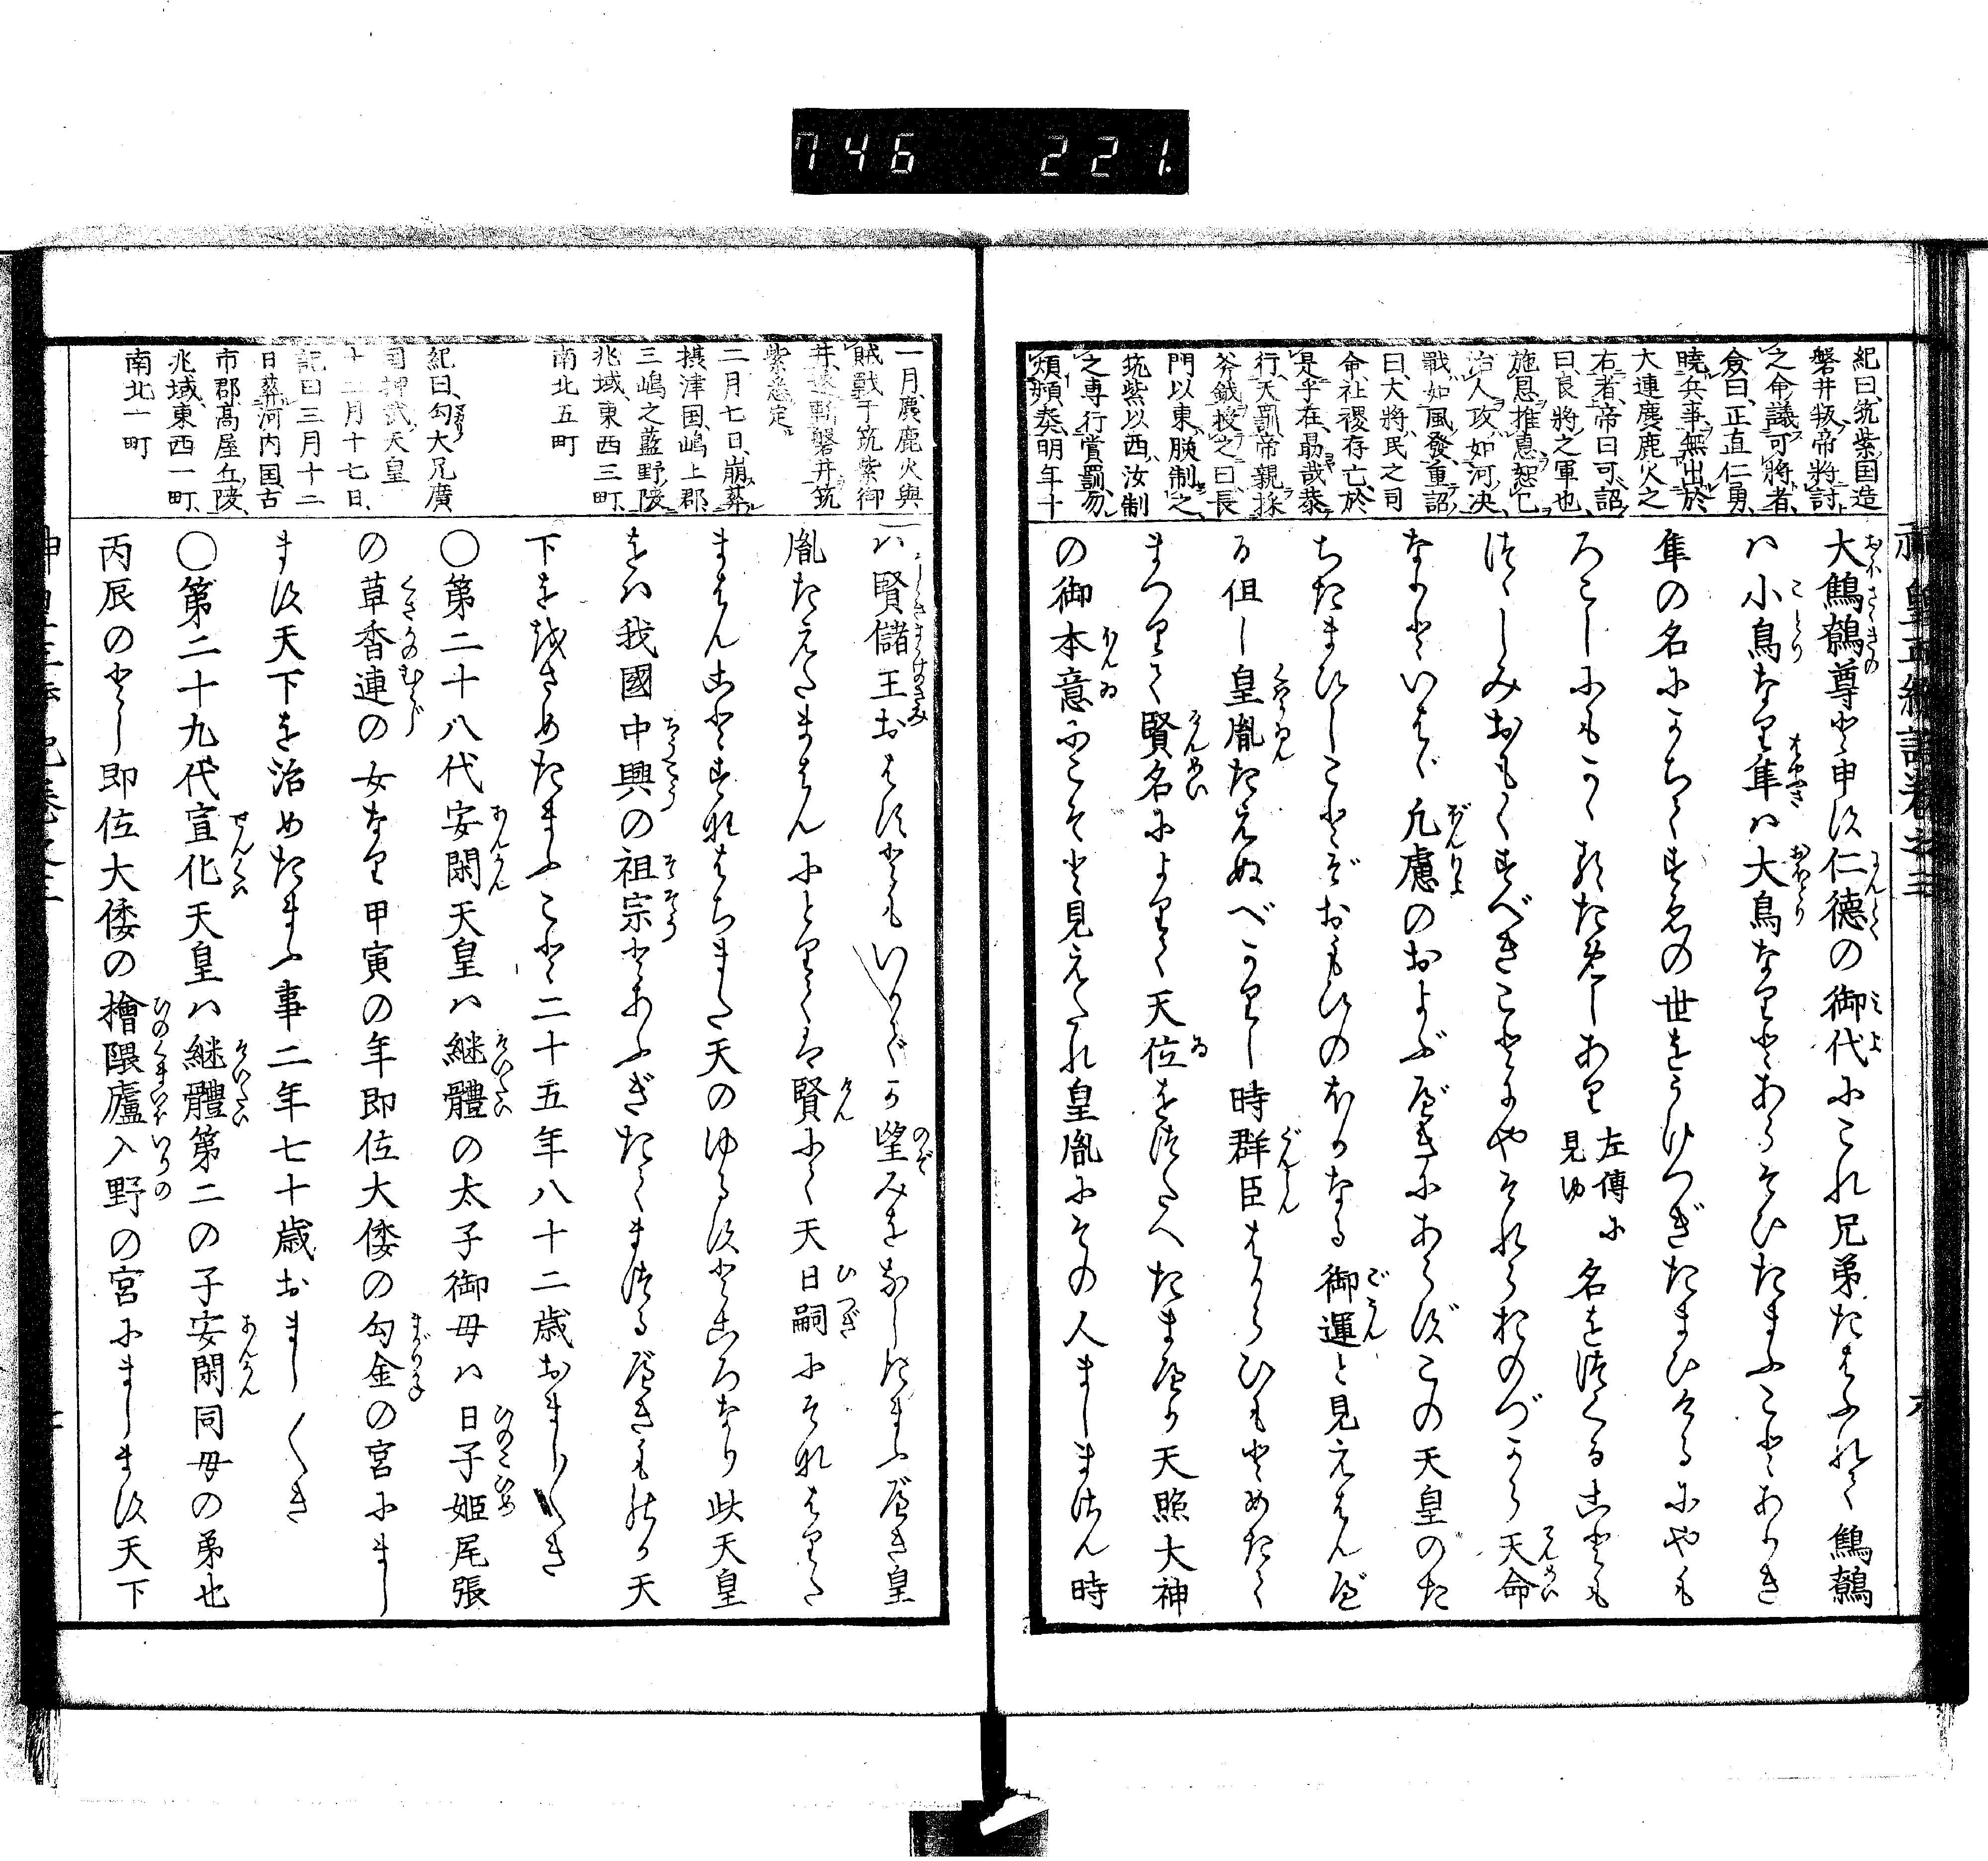 746 221
紀曰、筑紫国造
磐井叛、帝将討
之命議可將者、
僉曰、正直仁勇、
曉兵事無出於
大連麁鹿火之
右者、帝曰可、詔
曰、良將之軍也、
施恩推惠恕已
治人攻如河决、
戰如風發重詔
曰、大將、民之司
命社稷存亡、於
是乎在、勗哉恭
行天罰帝親採
斧鉞授之曰、長
門以東朕制之、
筑紫以西汝制
之専行賞罰勿
煩頻奏、明年十
大鷦鷯尊と申須仁德の御代にこれ兄弟たはふれて鷦鷯
ハ小鳥なり隼ハ大鳥なりとあらそひたまふことありき
隼の名にかちて末の世をうけつぎたまひけるにやも
ろこしにもかゝるためしあり左傳に見ゆ名をつくることも
つゝしみおもくすべきことにやそれもおのづから天命
なりといはゞ凡慮のおよぶべきにあらずこの天皇のた
ちたまひしことぞおもひのほかなる御運と見えはんべ
る但し皇胤たえぬべかりし時群臣はからひもとめたて
まつりて賢名によりて天位をつたへたまへり天照大神
の御本意にこそと見えたれ皇胤にその人ましまさん時
一月、麁鹿火與
賊戰于筑紫御
井、遂斬磐井筑
紫悉定
二月七日、崩、葬
摂津国、嶋上郡
三嶋之藍野陵
兆域、東西三町、
南北五町
紀曰、勾大兄廣
国押武天皇
十二月十七日、
記曰三月十二
日葬河内国古
市郡髙屋丘陵、
兆域、東西一町、
南北一町
ハ賢儲王おはすともいかでか望みをなしたまふべき皇
胤たえたまはんにとりては賢にて天日嗣にそなはりた
まはんことすなはちまた天のゆるすところなり此天皇
をハ我國中興の祖宗とあふぎたてまつるべきものか天
下を治さめたまふこと二十五年八十二歳おまし〳〵き
〇第二十八代安閑天皇ハ継體の太子御母ハ日子姫尾張
の草香連の女なり甲寅の年即位大倭の勾金の宮にまし
ます天下を治めたまふ事二年七十歳おまし〳〵き
〇第二十九代宣化天皇ハ継體第二の子安閑同母の弟也
丙辰のとし即位大倭の檜隈廬入野の宮にまします天下